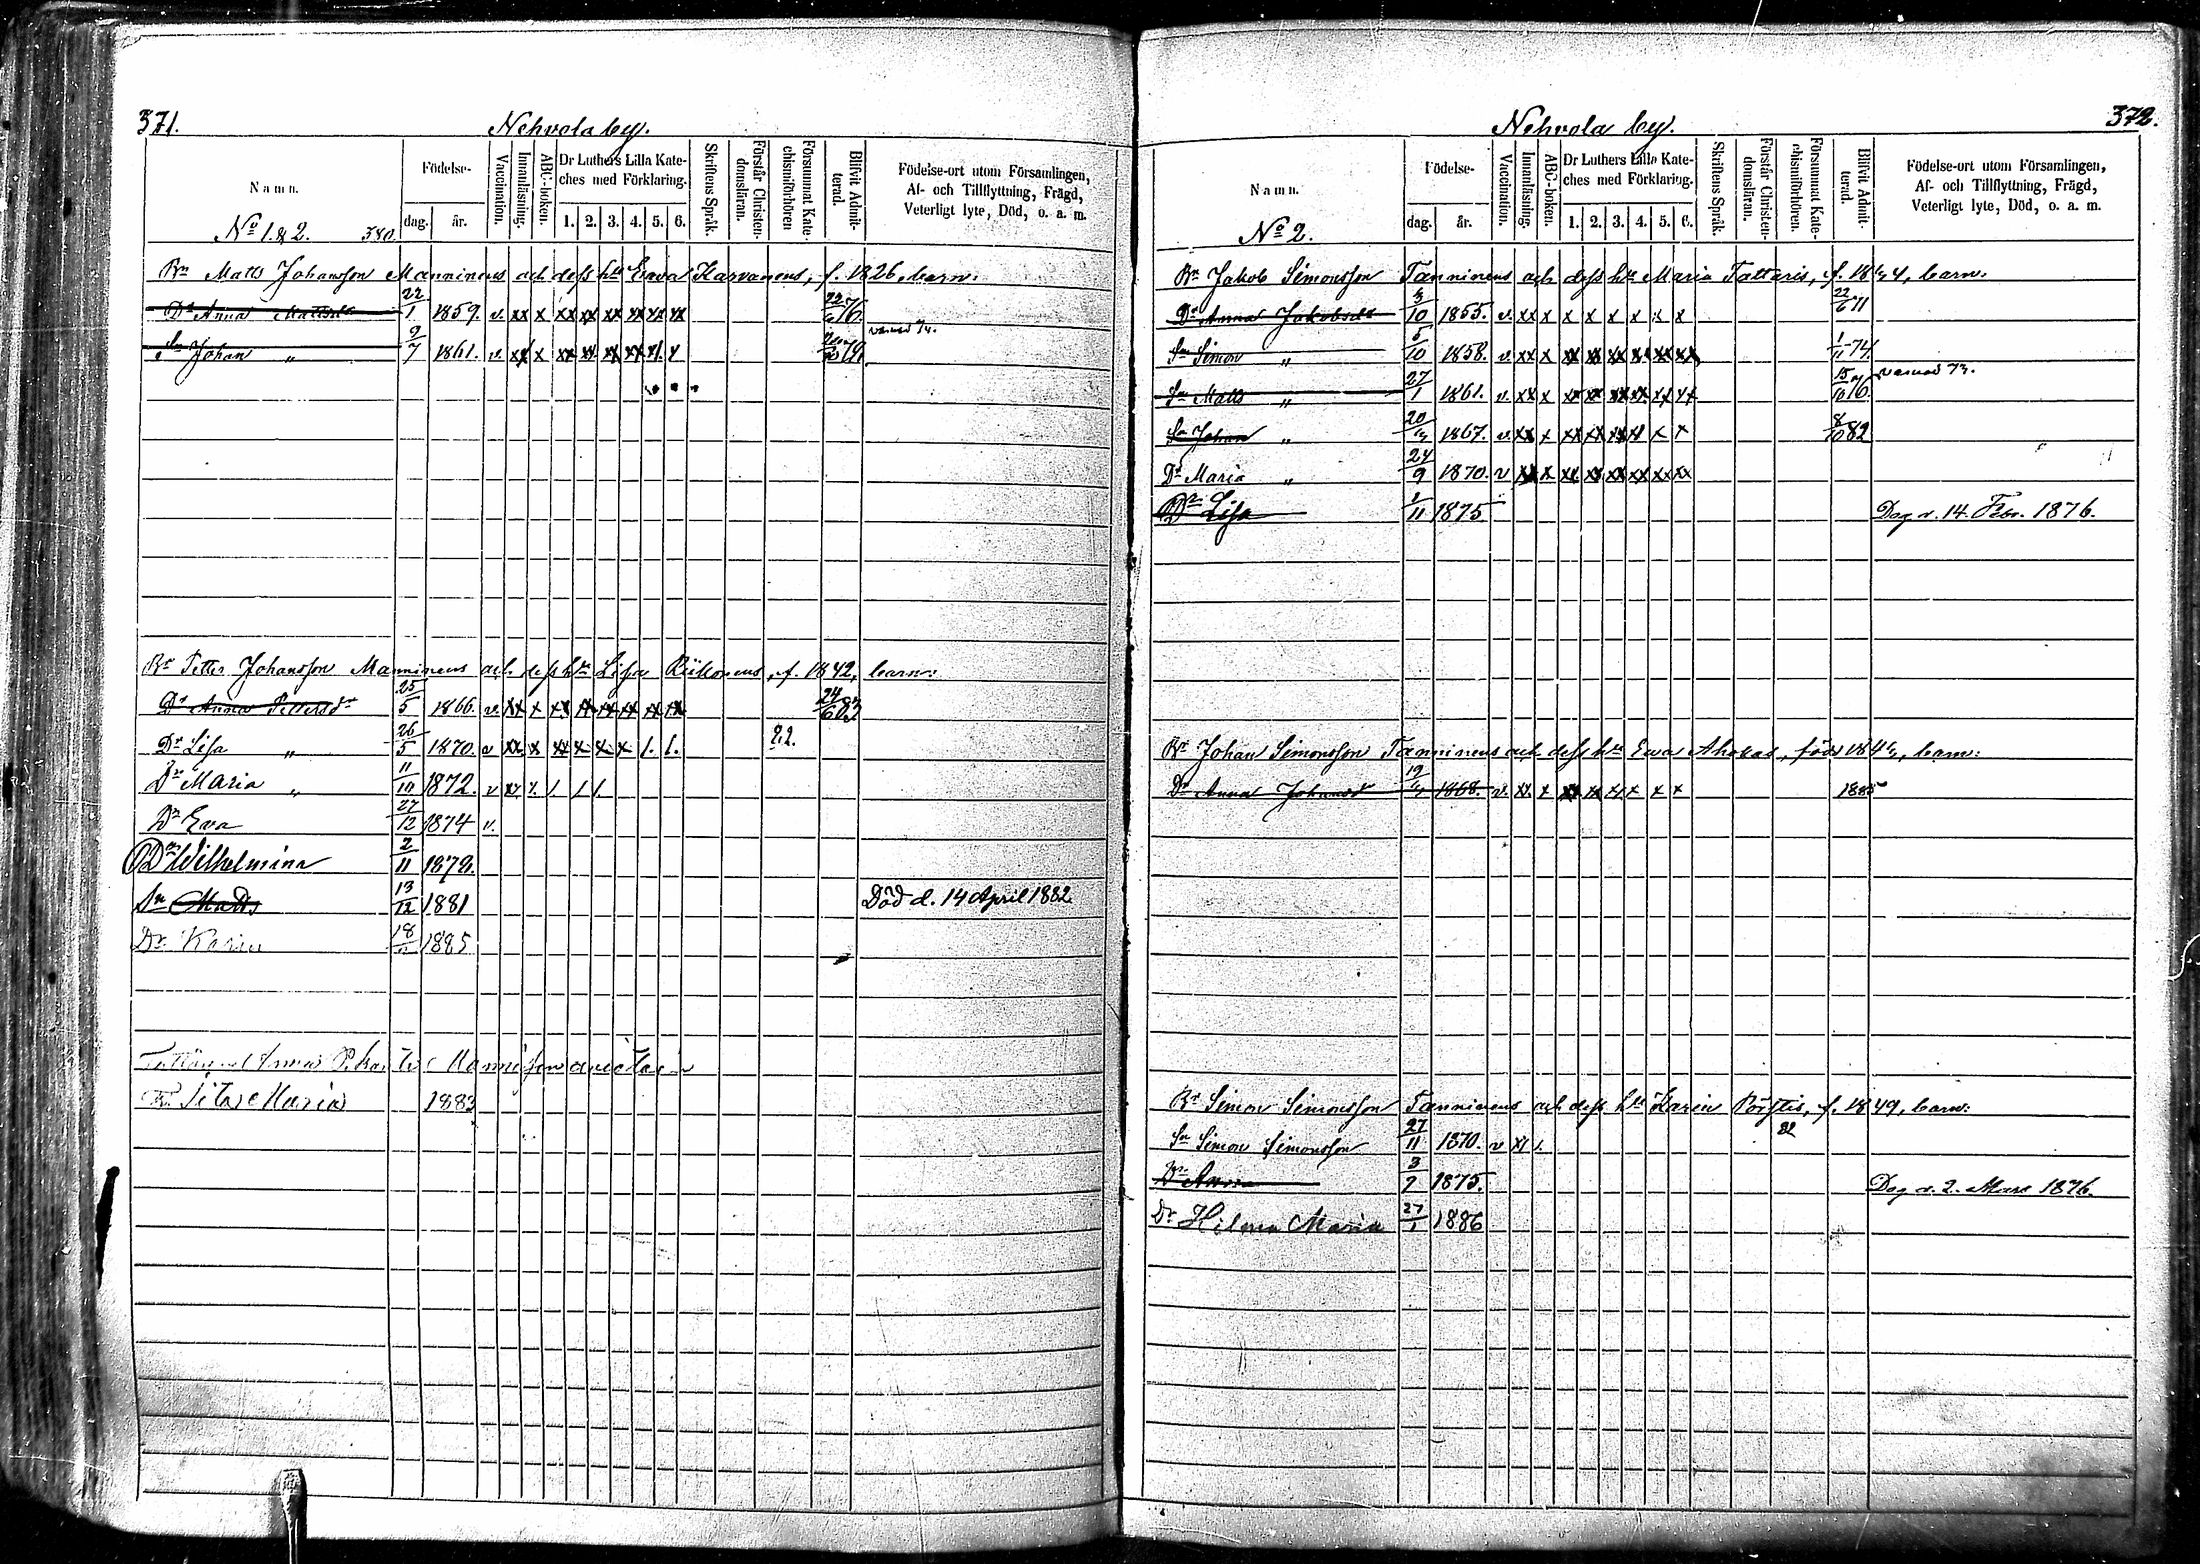 371.
Nehvola by.
Namn.
Födelse-
dag.
år.
Vaccination.
Innanläsning.
ABC-boken.
Dr Luthers Lilla Kate-
ches med Förklaring.
1. 2. 3. 4. 5. 6.
Skriftens Språk.
Förstår Christen-
domsläran.
Försummat Kate-
chismiförhören
Blifvit Admit-
terad.
Födelse-ort utom Församlingen,
Af- och Tillflyttning, Frägd,
Veterligt lyte, Död, o. a. m.
No 1. & 2. 380.
Bn Matts Johansson Manninens och dess hu Ewa Karvanens, f. 1826, barn:
Dr Anna Mattsdr 22/1 1859. v. xx x xx xx xx xx xx xx 76.
Sn Johan „ 9/7 1861. v. xx x xx xx xx xx x
Bn Petter Johansson Manninens och dess hu Lisa Riikonens, f. 1842, barn:
Dr Anna Pettersdr 25/5 1866. v. xx x xx xx xx xx xx xx 24/6 83
Dr Lisa „ 26/5 1870. v xx x xx x x x /. /. 82.
Dr Maria „ 11/10 1872. v
Dr Eva 27/12 1874 v.
Dr Wilhelmina 2/11 1879.
Sn Matts 13/12 1881 Död d. 14 April 1882.
Dr Karin 1885
Anna
Maria 1883
372.
Nehvola by.
Namn.
Födelse-
dag.
år.
Vaccination.
Innanläsning.
ABC-boken.
Dr Luthers Lilla Kate-
ches med Förklaring.
1. 2. 3. 4. 5. 6.
Skriftens Språk.
Förstår Christen-
domsläran.
Försummat Kate-
chismiförhören.
Blifvit Admit-
terad.
Födelse-ort utom Församlingen,
Af- och Tillflyttning, Frägd,
Veterligt lyte, Död, o. a. m.
No 2.
Bn Jakob Simonsson Tanninens och dess hu Maria Tattaris, f. barn:
Dr Anna Jakobsdr 1855. v. xx x x x x x x x 22/6 71
Sn Simon „ 5/10 1858. v. xx x xx xx xx xx xx xx 1/11 74.
Sn Matts „ 27/1 1861. v. xx x xx xx xx xx xx xx 15/10 76.
Sn Johan „ 1867. v. xx x xx xx xx x x x 8/10 82
Dr Maria „ 24/9 1870. v xx x xx xx xx xx xx xx
Dr Lisa 1/11 1875 Dog d. 14. Febr. 1876.
Bn Johan Simonsson Tanninens och dess hu Ewa Ahokas, född barn:
Dr Anna Johansdr 1868. v. xx x xx xx xx x x x 1885
Bn Simon Simonsson Tanninens och dess hu Karin Pörstis, f. 1849, barn:
Sn Simon Simonsson 27/11 1870. v 82
Dr Anna 3/7 1875. Dog d. 2. Mars 1876.
Dr Hilma Maria 27/1 1886